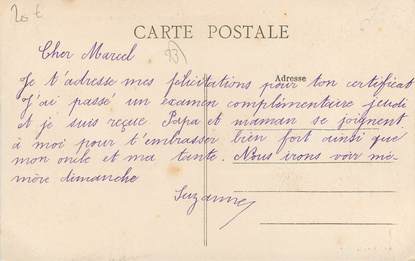 20 €
CARTE POSTALE
Cher Marcel
Adresse
Je t'adresse mes félicitations pour ton certificat
J'ai passé un examen complémentière jeudi
et je suis reçue. Papa et maman se joignent
à moi pour t'embrasser bien fort ainsi que
mon oncle et ma tante. Nous irons voir mé-
mère dimanche
Suzanne